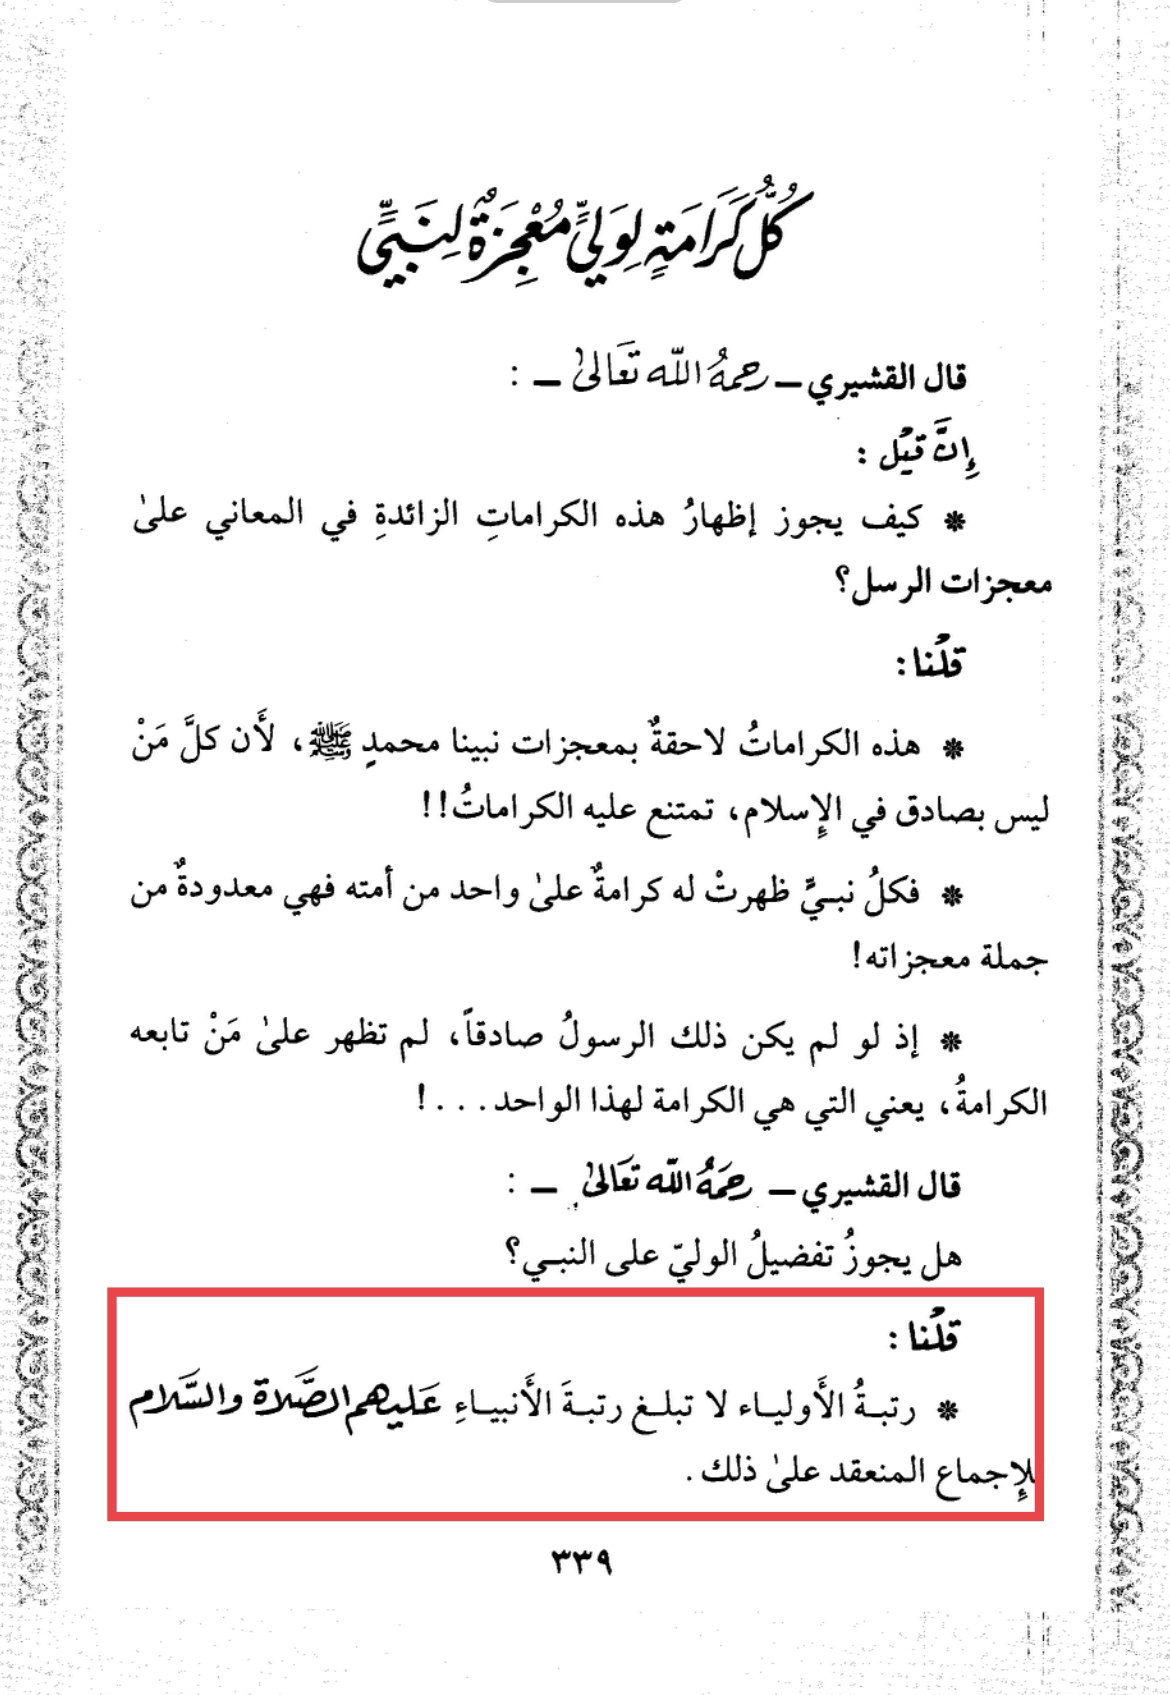 كُلُّ كَرَامَةٍ لِوَلِيٍّ مُعْجِزَةٌ لِنَبِيٍّ
قال القشيري ــ رحمهُ اللّه تَعَالىٰ ــ :
إِنَّ قيْل :
* كيف يجوز إظهارُ هذه الكراماتِ الزائدةِ في المعاني علىٰ
معجزات الرسل؟
قلْنا :
* هذه الكراماتُ لاحقةٌ بمعجزات نبينا محمدٍ ﷺ، لأَن كلَّ مَنْ
ليس بصادق في الإِسلام، تمتنع عليه الكراماتُ!!
* فكلُ نبيٍّ ظهرتْ له كرامةٌ علىٰ واحد من أمته فهي معدودةٌ من
جملة معجزاته!
* إذ لو لم يكن ذلك الرسولُ صادقاً، لم تظهر علىٰ مَنْ تابعه
الكرامةُ، يعني التي هي الكرامة لهذا الواحد. . . !
قال القشيري ــ رحمَهُ اللّه تعَالىٰ ــ :
هل يجوزُ تفضيلُ الوليّ على النبي؟
قلْنا :
* رتبةُ الأَولياء لا تبلغ رتبةَ الأَنبياءِ عَليهم الصَّلاة والسَّلام
للإِجماع المنعقد علىٰ ذلك .
٣٣٩